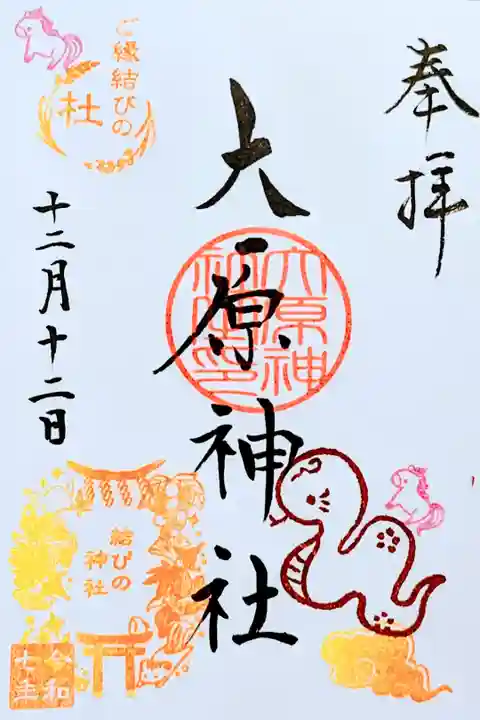 奉拝
大原神社
大原神
ご縁結びの
杜
十二月十二日
結びの
神社
令和
七年